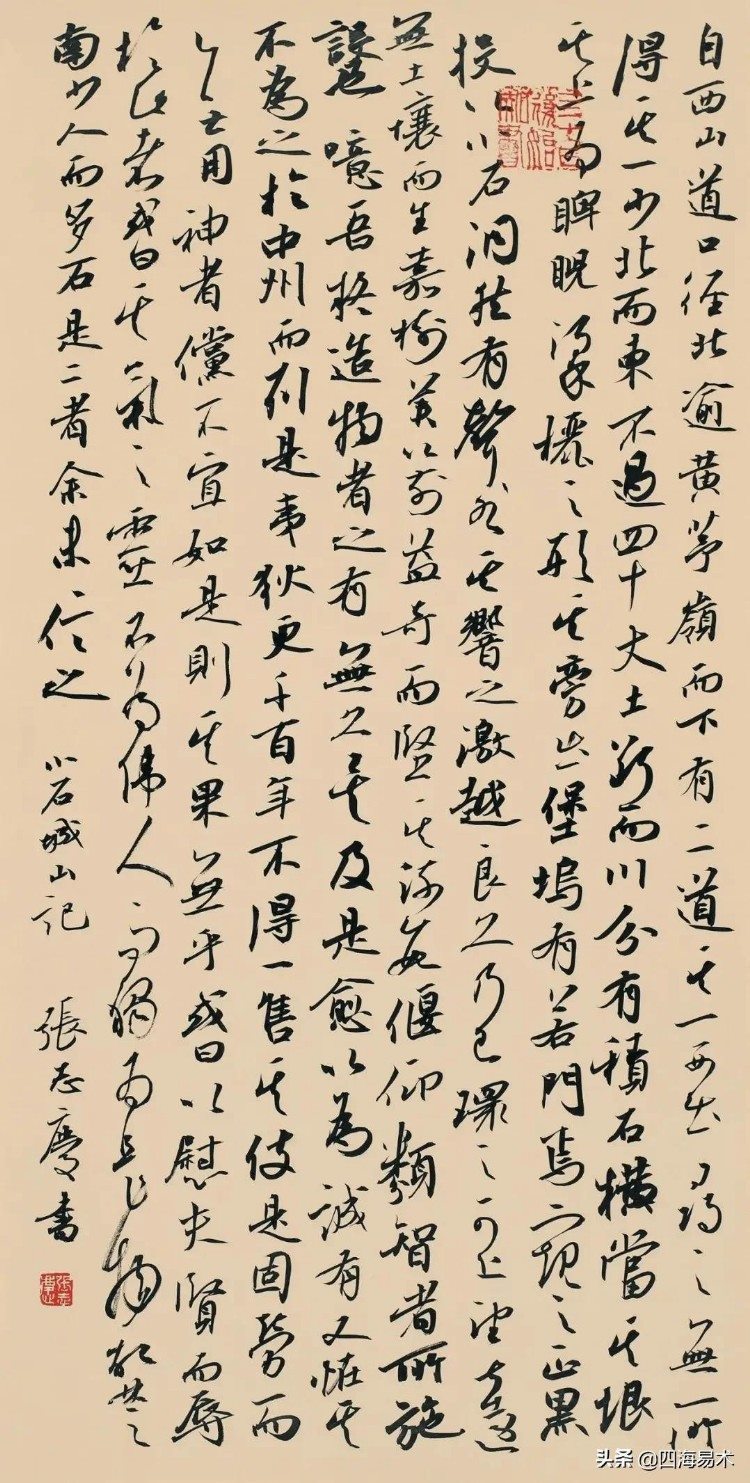 自西山道口徑北逾黄茅嶺而下有二道其一西出尋之無所
得其一少北而東不過四十丈土斷而川分有積石橫當其垠
其上為睥睨梁欐之形其旁出堡塢有若門焉窺之正黑
投以小石洞然有聲其響之激越良久乃已環之可上望甚遠
無土壤而生嘉樹美箭益奇而堅其疏數偃仰類智者所施
設也噫吾疑造物者之有無久矣及是愈以為誠有又怪其
不為之於中州而列是夷狄更千百年不得一售其伎是固勞而
無用神者儻不宜如是則其果無乎或曰以慰夫賢而辱
於此者或曰其氣之靈不為偉人而獨為是物故楚之
南少人而多石是二者余未信之 小石城山記 張志慶書
头条 @四海易术